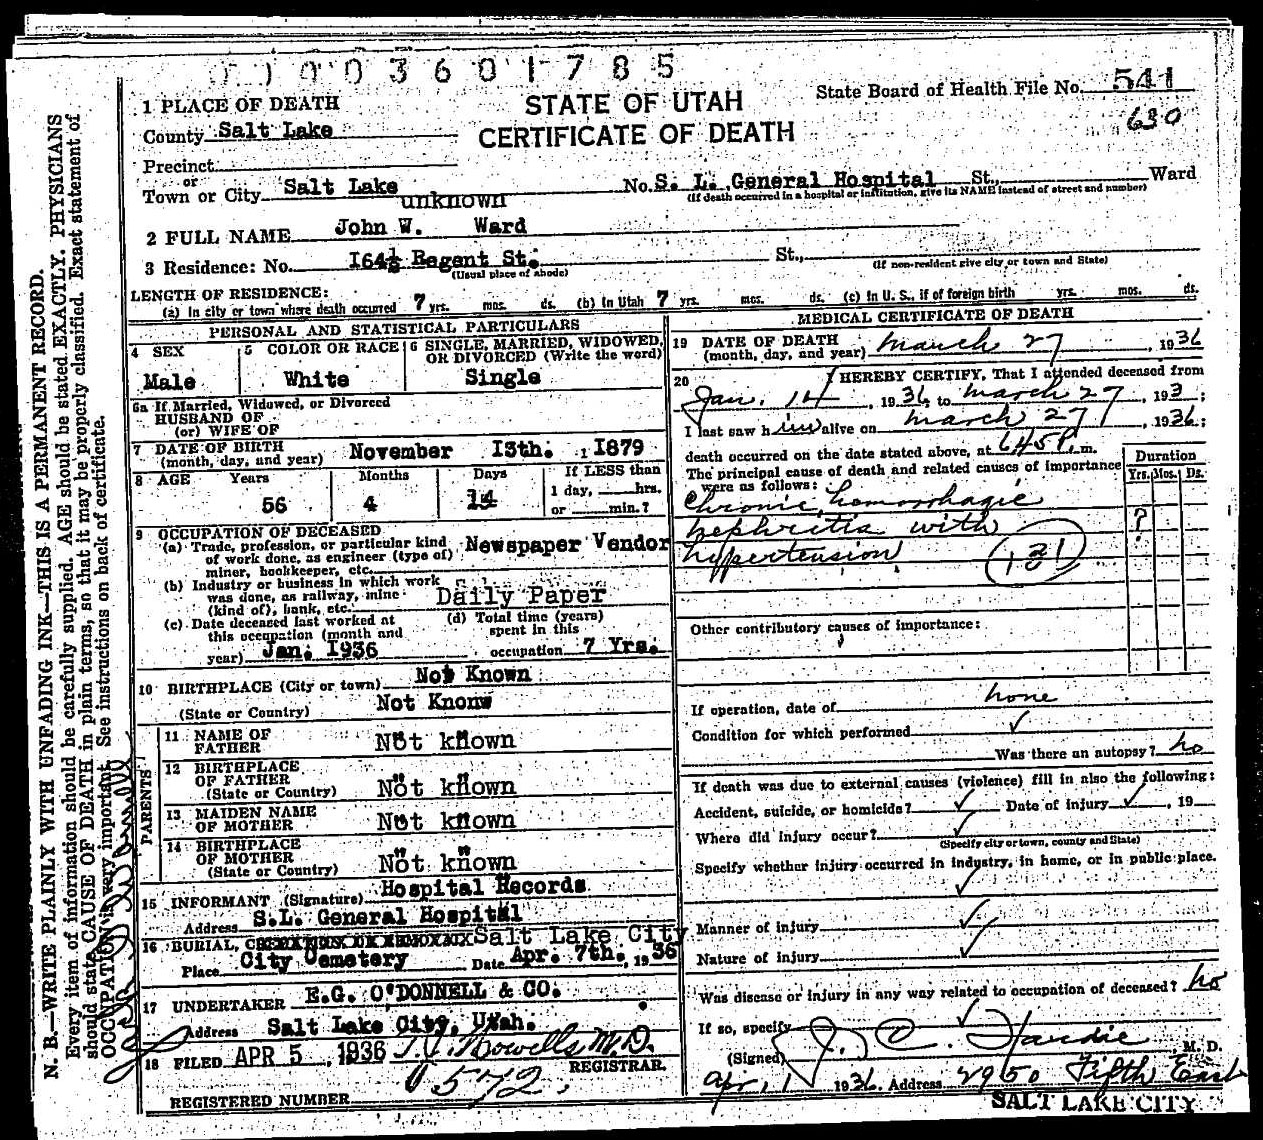 01003601785
1 PLACE OF DEATH
STATE OF UTAH
State Board of Health File No. 541
County Salt Lake
CERTIFICATE OF DEATH
630
Precinct
or
Town or City Salt Lake No. S. L. General Hospital St., Ward
(If death occurred in a hospital or institution, give its NAME instead of street and number)
unknown
2 FULL NAME John W. Ward
3 Residence: No. 164½ Regent St. St.,
(Usual place of abode) (If non-resident give city or town and State)
LENGTH OF RESIDENCE:
(a) In city or town where death occurred 7 yrs. mos. ds. (b) In Utah 7 yrs. mos. ds. (c) In U. S., if of foreign birth yrs. mos. ds.
PERSONAL AND STATISTICAL PARTICULARS
4 SEX
Male
5 COLOR OR RACE
White
6 SINGLE, MARRIED, WIDOWED,
OR DIVORCED (Write the word)
Single
6a If Married, Widowed, or Divorced
HUSBAND OF
(or) WIFE OF
7 DATE OF BIRTH
(month, day, and year) November 13th. , 1879
8 AGE Years Months Days If LESS than
1 day, hrs.
or min.?
56 4 14
9 OCCUPATION OF DECEASED
(a) Trade, profession, or particular kind
of work done, as engineer (type of)
miner, bookkeeper, etc. Newspaper Vendor
(b) Industry or business in which work
was done, as railway, mine
(kind of), bank, etc. Daily Paper
(c) Date deceased last worked at
this occupation (month and
year) Jan. 1936
(d) Total time (years)
spent in this
occupation 7 Yrs.
10 BIRTHPLACE (City or town) Not Known
(State or Country) Not Knonw
PARENTS
11 NAME OF
FATHER Not known
12 BIRTHPLACE
OF FATHER
(State or Country) Not known
13 MAIDEN NAME
OF MOTHER Not known
14 BIRTHPLACE
OF MOTHER
(State or Country) Not known
15 INFORMANT (Signature) Hospital Records
Address S.L. General Hospital
16 BURIAL, Salt Lake City
Place City Cemetery Date Apr. 7th. , 1936
17 UNDERTAKER E.G. O'DONNELL & CO.
Address Salt Lake City, Utah.
18 FILED APR 5 , 1936 M.D.
REGISTRAR.
REGISTERED NUMBER 572
MEDICAL CERTIFICATE OF DEATH
19 DATE OF DEATH
(month, day, and year) March 27 , 1936
20 I HEREBY CERTIFY, That I attended deceased from
Jan. 14 , 1936, to March 27 , 193 ;
I last saw him alive on March 27 , 1936;
death occurred on the date stated above, at 645 P. m.
The principal cause of death and related causes of importance
were as follows:
Duration
Yrs. Mos. Ds.
Chronic hemorrhagic
nephritis with ?
hypertension 131
Other contributory causes of importance:
If operation, date of none
Condition for which performed ✓
Was there an autopsy? no
If death was due to external causes (violence) fill in also the following:
Accident, suicide, or homicide? ✓ Date of injury ✓ , 19
Where did injury occur? ✓
(Specify city or town, county and State)
Specify whether injury occurred in industry, in home, or in public place.
✓
Manner of injury ✓
Nature of injury ✓
Was disease or injury in any way related to occupation of deceased? no
If so, specify ✓
(Signed) J. C. Hardie M. D.
Apr. 1 1936. Address 2950 Fifth East
SALT LAKE CITY
N. B.—WRITE PLAINLY WITH UNFADING INK—THIS IS A PERMANENT RECORD.
Every item of information should be carefully supplied. AGE should be stated EXACTLY. PHYSICIANS
should state CAUSE OF DEATH in plain terms, so that it may be properly classified. Exact statement of
OCCUPATION is very important. See instructions on back of certificate.